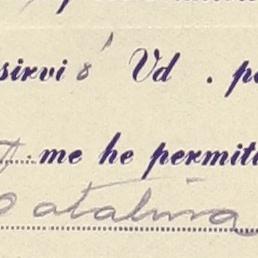 sirvió Vd. p
me he permit
Catalina